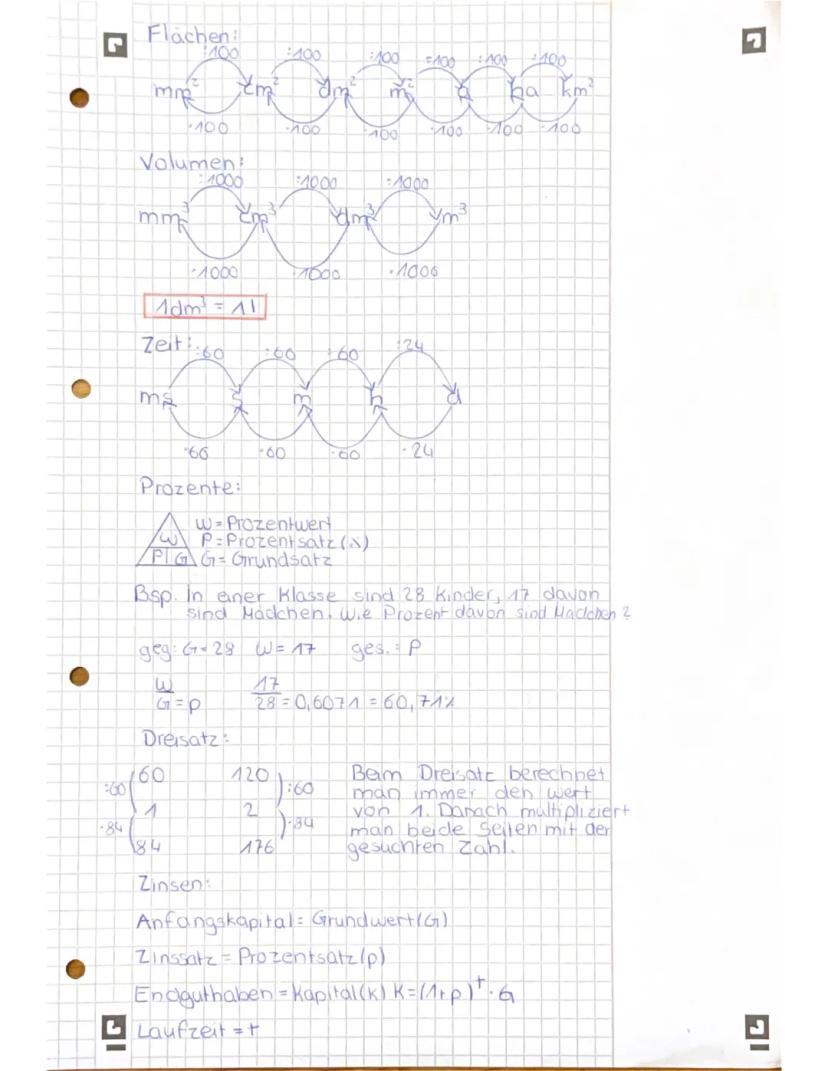 Flächen:
:100 :100 :100 :100 :100 :100
mm² cm² dm² m² a ha km²
·100 ·100 ·100 ·100 ·100 ·100
Volumen:
:1000 :1000 :1000
mm³ cm³ dm³ m³
·1000 ·1000 ·1000
1dm³ = 1l
Zeit:
:60 :60 :60 :24
ms s m h d
·60 ·60 ·60 ·24
Prozente:
W = Prozentwert
W P = Prozentsatz (%)
P | G G = Grundsatz
Bsp. In einer Klasse sind 28 Kinder, 17 davon
sind Mädchen. Wie Prozent davon sind Mädchen?
geg: G = 28 W = 17 ges.: P
W 17
G = p 28 = 0,6071 = 60,71%
Dreisatz:
60 120 Beim Dreisatz berechnet
:60 :60 man immer den Wert
1 2 von 1. Danach multipliziert
·84 ·84 man beide Seiten mit der
84 176 gesuchten Zahl.
Zinsen:
Anfangskapital = Grundwert (G)
Zinssatz = Prozentsatz (p)
Endguthaben = Kapital (K) K = (1+p)^t · G
Laufzeit = t